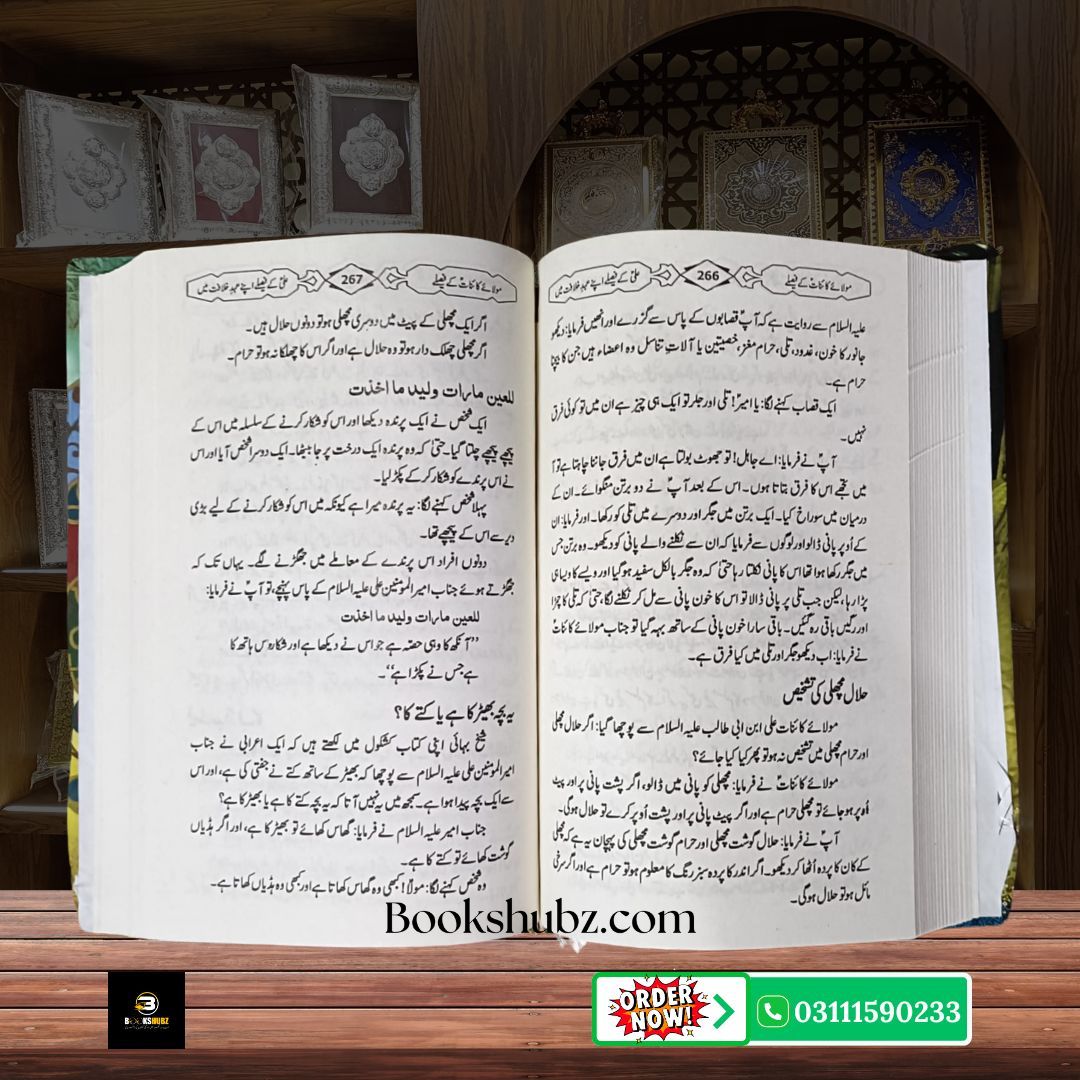 مولائے کائناتؑ کے فیصلے
266
علیؑ کے فیصلے اپنے عہدِ خلافت میں
علیہ السلام سے روایت ہے کہ آپؑ قصابوں کے پاس سے گزرے اور انھیں فرمایا: دیکھو
جانور کا خون، غدود، تلی، حرام مغز، خصیتین یا آلاتِ تناسل وہ اعضاء ہیں جن کا بیچنا
حرام ہے۔
ایک قصاب کہنے لگا: یا امیرؑ! تلی اور جگر تو ایک ہی چیز ہے ان میں تو کوئی فرق
نہیں۔
آپؑ نے فرمایا: اے جاہل! تو جھوٹ بولتا ہے ان میں فرق جاننا چاہتا ہے تو آ
میں تجھے اس کا فرق بتاتا ہوں۔ اس کے بعد آپؑ نے دو برتن منگوائے۔ ان کے
درمیان میں سوراخ کیا۔ ایک برتن میں جگر اور دوسرے میں تلی کو رکھا۔ اور فرمایا: ان
کے اُوپر پانی ڈالو اور لوگوں سے فرمایا کہ ان سے نکلنے والے پانی کو دیکھو۔ وہ برتن جس
میں جگر رکھا ہوا تھا اس کا پانی نکلتا رہا حتیٰ کہ وہ جگر بالکل سفید ہوگیا اور ویسے کا ویسا ہی
پڑا رہا، لیکن جب تلی پر پانی ڈالا تو اس کا خون پانی سے مل کر نکلنے لگا، حتیٰ کہ تلی کا چمڑا
اور رگیں باقی رہ گئیں۔ باقی سارا خون پانی کے ساتھ بہہ گیا تو جناب مولائے کائناتؑ
نے فرمایا: اب دیکھو جگر اور تلی میں کیا فرق ہے۔
حلال مچھلی کی تشخیص
مولائے کائنات علی ابن ابی طالب علیہ السلام سے پوچھا گیا: اگر حلال مچھلی
اور حرام مچھلی میں تشخص نہ ہو تو پھر کیا کیا جائے؟
مولائے کائناتؑ نے فرمایا: مچھلی کو پانی میں ڈالو، اگر پشت پانی پر اور پیٹ
اُوپر ہو جائے تو مچھلی حرام ہے اور اگر پیٹ پانی پر اور پشت اُوپر کرے تو حلال ہوگی۔
آپؑ نے فرمایا: حلال گوشت مچھلی اور حرام گوشت مچھلی کی پہچان یہ ہے کہ مچھلی
کے کان کا پردہ اُٹھا کر دیکھو۔ اگر اندر کا پردہ سبز رنگ کا معلوم ہو تو حرام ہے اور اگر سرخی
مائل ہو تو حلال ہوگی۔
مولائے کائناتؑ کے فیصلے
267
علیؑ کے فیصلے اپنے عہدِ خلافت میں
اگر ایک مچھلی کے پیٹ میں دوسری مچھلی ہو تو دونوں حلال ہیں۔
اگر مچھلی چھلک دار ہو تو وہ حلال ہے اور اگر اس کا چھلکا نہ ہو تو حرام۔
للعین مارات ولید ما اخذت
ایک شخص نے ایک پرندہ دیکھا اور اس کو شکار کرنے کے سلسلہ میں اس کے
پیچھے پیچھے چلتا گیا۔ حتیٰ کہ وہ پرندہ ایک درخت پر جا بیٹھا۔ ایک دوسرا شخص آیا اور اس
نے اس پرندے کو شکار کر کے پکڑ لیا۔
پہلا شخص کہنے لگا: یہ پرندہ میرا ہے کیونکہ میں اس کو شکار کرنے کے لیے بڑی
دیر سے اس کے پیچھے تھا۔
دونوں افراد اس پرندے کے معاملے میں جھگڑنے لگے۔ یہاں تک کہ
جھگڑتے ہوئے جناب امیر المومنین علی علیہ السلام کے پاس پہنچے، تو آپؑ نے فرمایا:
للعین مارات ولید ما اخذت
’’آنکھ کا وہی حصّہ ہے جو اس نے دیکھا ہے اور شکار اس ہاتھ کا
ہے جس نے پکڑا ہے‘‘۔
یہ بچہ بھیڑ کا ہے یا کتے کا؟
شیخ بہائی اپنی کتاب کشکول میں لکھتے ہیں کہ ایک اعرابی نے جناب
امیر المومنین علی علیہ السلام سے پوچھا کہ بھیڑ کے ساتھ کتے نے جفتی کی ہے، اور اس
سے ایک بچہ پیدا ہوا ہے۔ سمجھ میں یہ نہیں آتا کہ یہ بچہ کتے کا ہے یا بھیڑ کا ہے؟
جناب امیر علیہ السلام نے فرمایا: گھاس کھائے تو بھیڑ کا ہے، اور اگر ہڈیاں
گوشت کھائے تو کتے کا ہے۔
وہ شخص کہنے لگا: مولا! کبھی وہ گھاس کھاتا ہے اور کبھی وہ ہڈیاں کھاتا ہے۔
Bookshubz.com
B
BOOKSHUBZ
ORDER
NOW!
03111590233